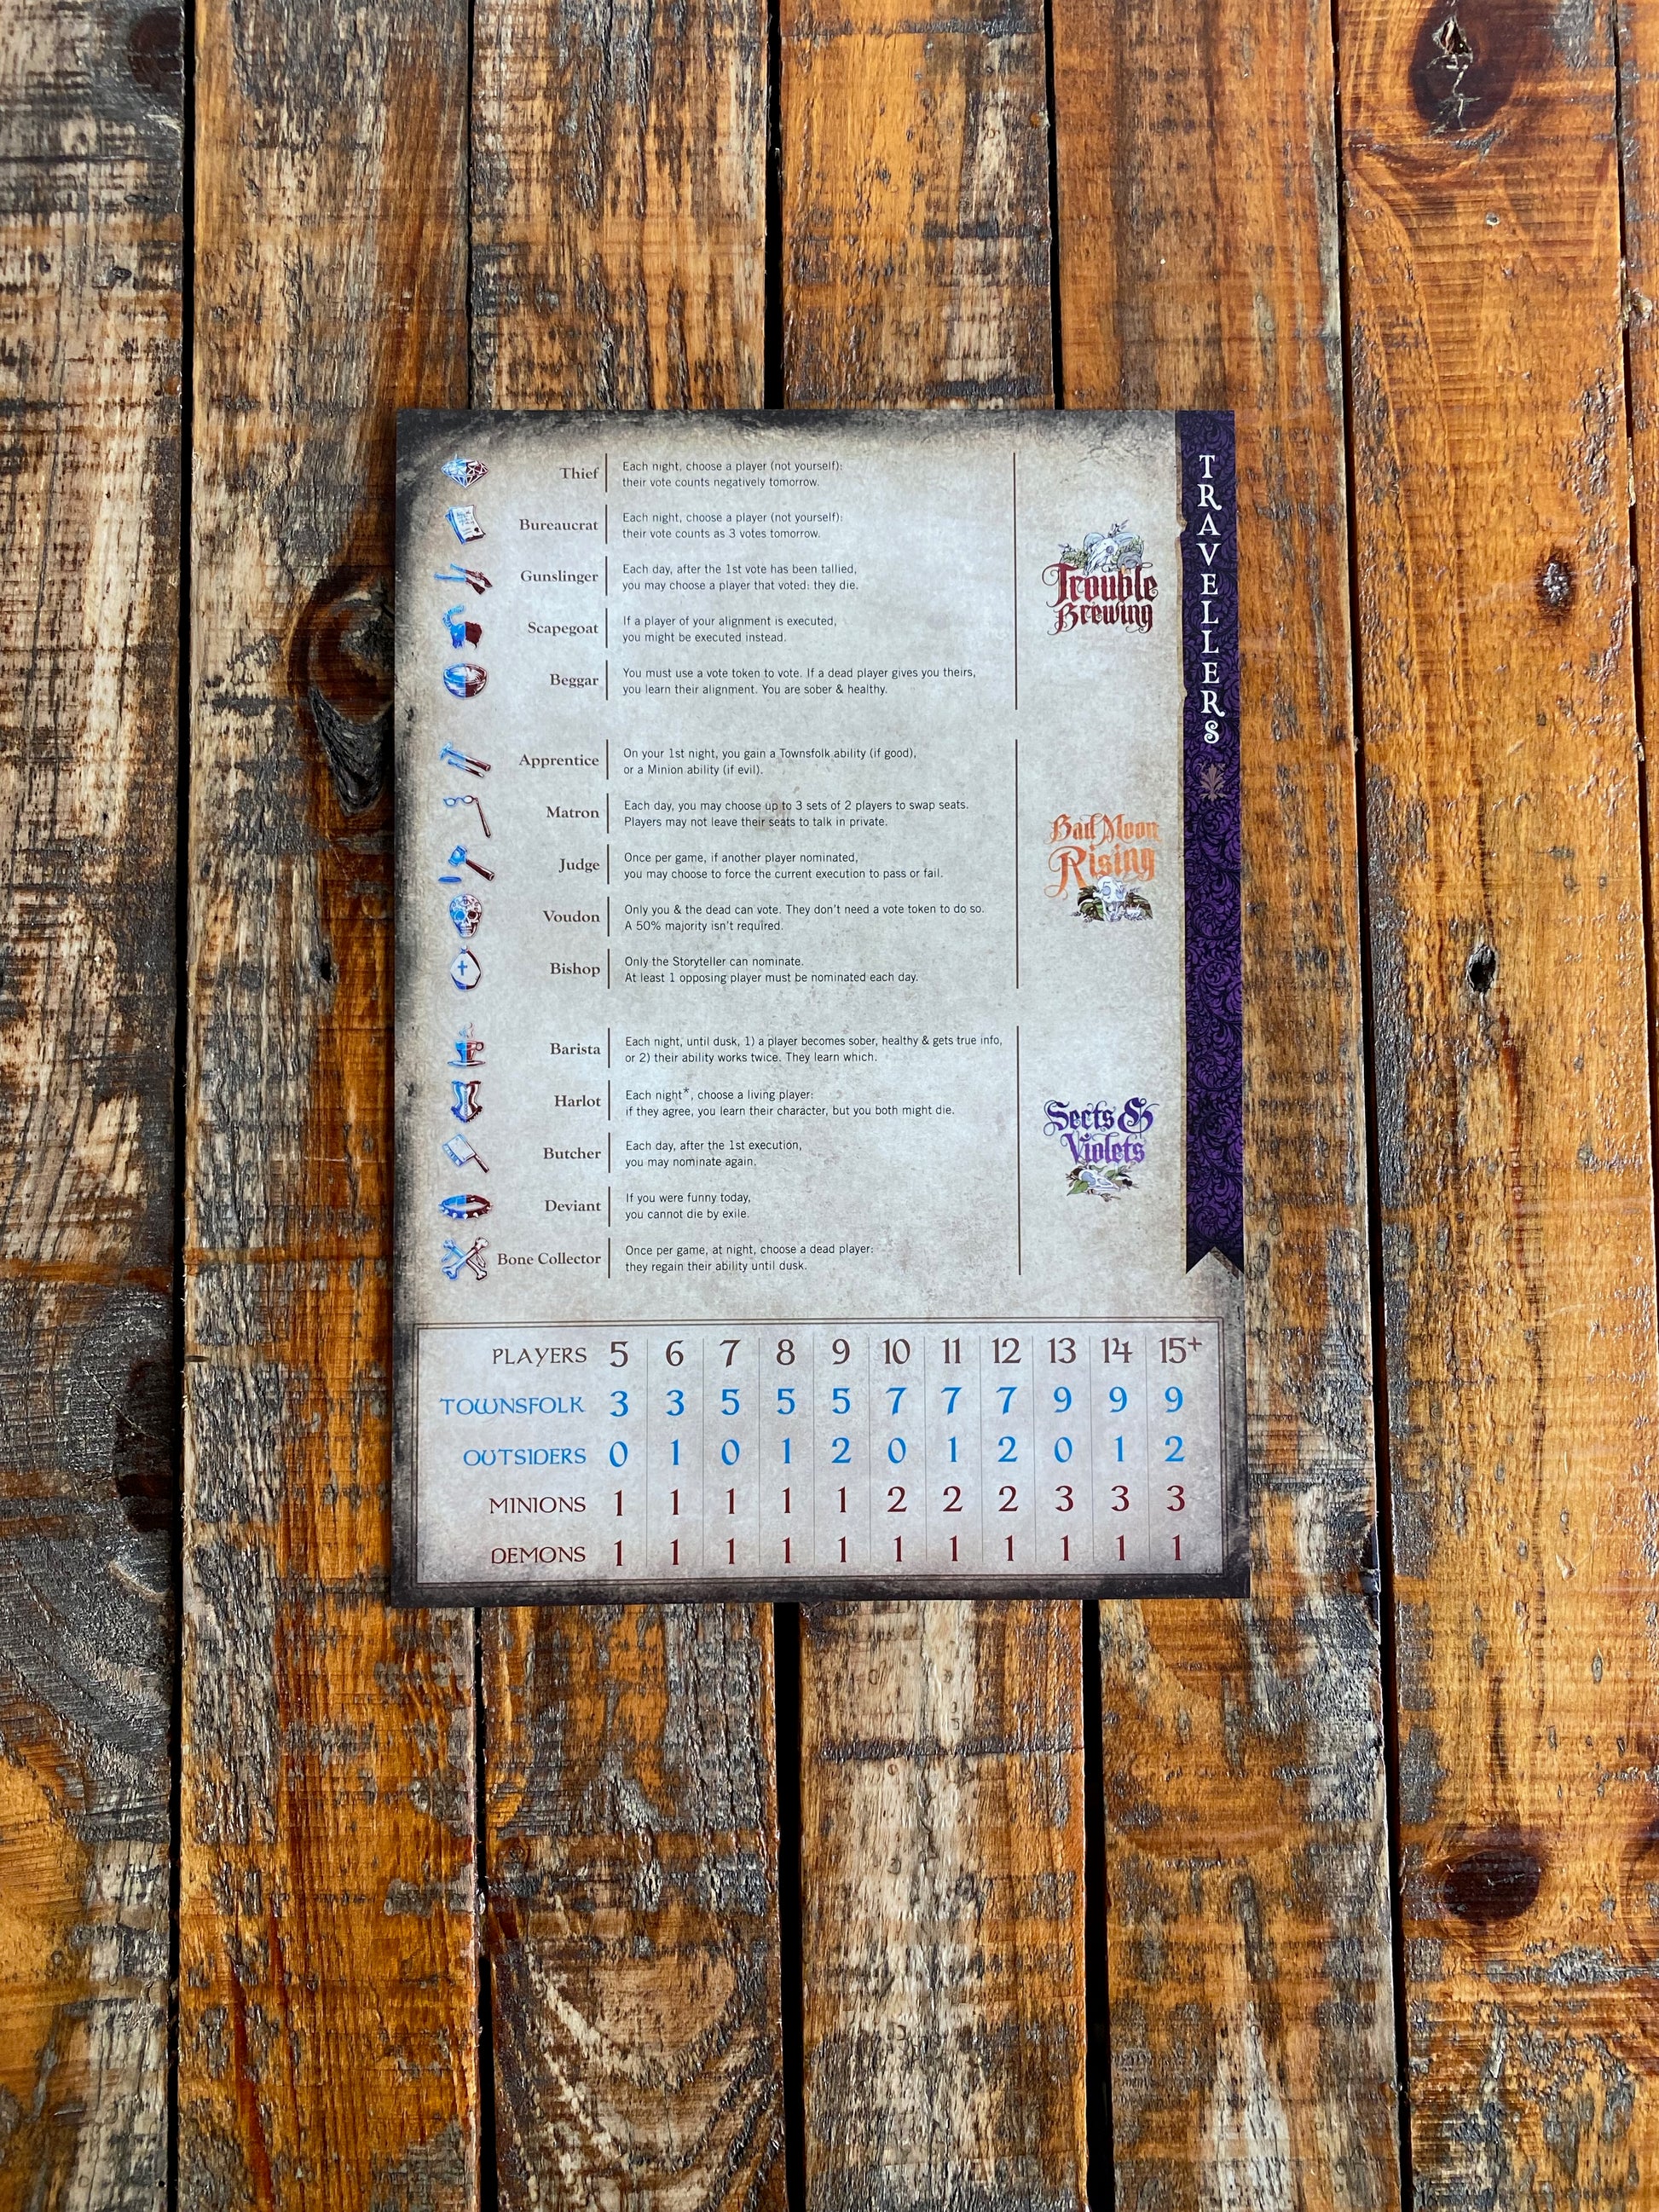 TRAVELLERS
Thief
Each night, choose a player (not yourself):
their vote counts negatively tomorrow.
Bureaucrat
Each night, choose a player (not yourself):
their vote counts as 3 votes tomorrow.
Gunslinger
Each day, after the 1st vote has been tallied,
you may choose a player that voted: they die.
Scapegoat
If a player of your alignment is executed,
you might be executed instead.
Beggar
You must use a vote token to vote. If a dead player gives you theirs,
you learn their alignment. You are sober & healthy.
Trouble
Brewing
Apprentice
On your 1st night, you gain a Townsfolk ability (if good),
or a Minion ability (if evil).
Matron
Each day, you may choose up to 3 sets of 2 players to swap seats.
Players may not leave their seats to talk in private.
Judge
Once per game, if another player nominated,
you may choose to force the current execution to pass or fail.
Voudon
Only you & the dead can vote. They don't need a vote token to do so.
A 50% majority isn't required.
Bishop
Only the Storyteller can nominate.
At least 1 opposing player must be nominated each day.
Bad Moon
Rising
Barista
Each night, until dusk, 1) a player becomes sober, healthy & gets true info,
or 2) their ability works twice. They learn which.
Harlot
Each night*, choose a living player:
if they agree, you learn their character, but you both might die.
Butcher
Each day, after the 1st execution,
you may nominate again.
Deviant
If you were funny today,
you cannot die by exile.
Bone Collector
Once per game, at night, choose a dead player:
they regain their ability until dusk.
Sects &
Violets
PLAYERS 5 6 7 8 9 10 11 12 13 14 15+
TOWNSFOLK 3 3 5 5 5 7 7 7 9 9 9
OUTSIDERS 0 1 0 1 2 0 1 2 0 1 2
MINIONS 1 1 1 1 1 2 2 2 3 3 3
DEMONS 1 1 1 1 1 1 1 1 1 1 1